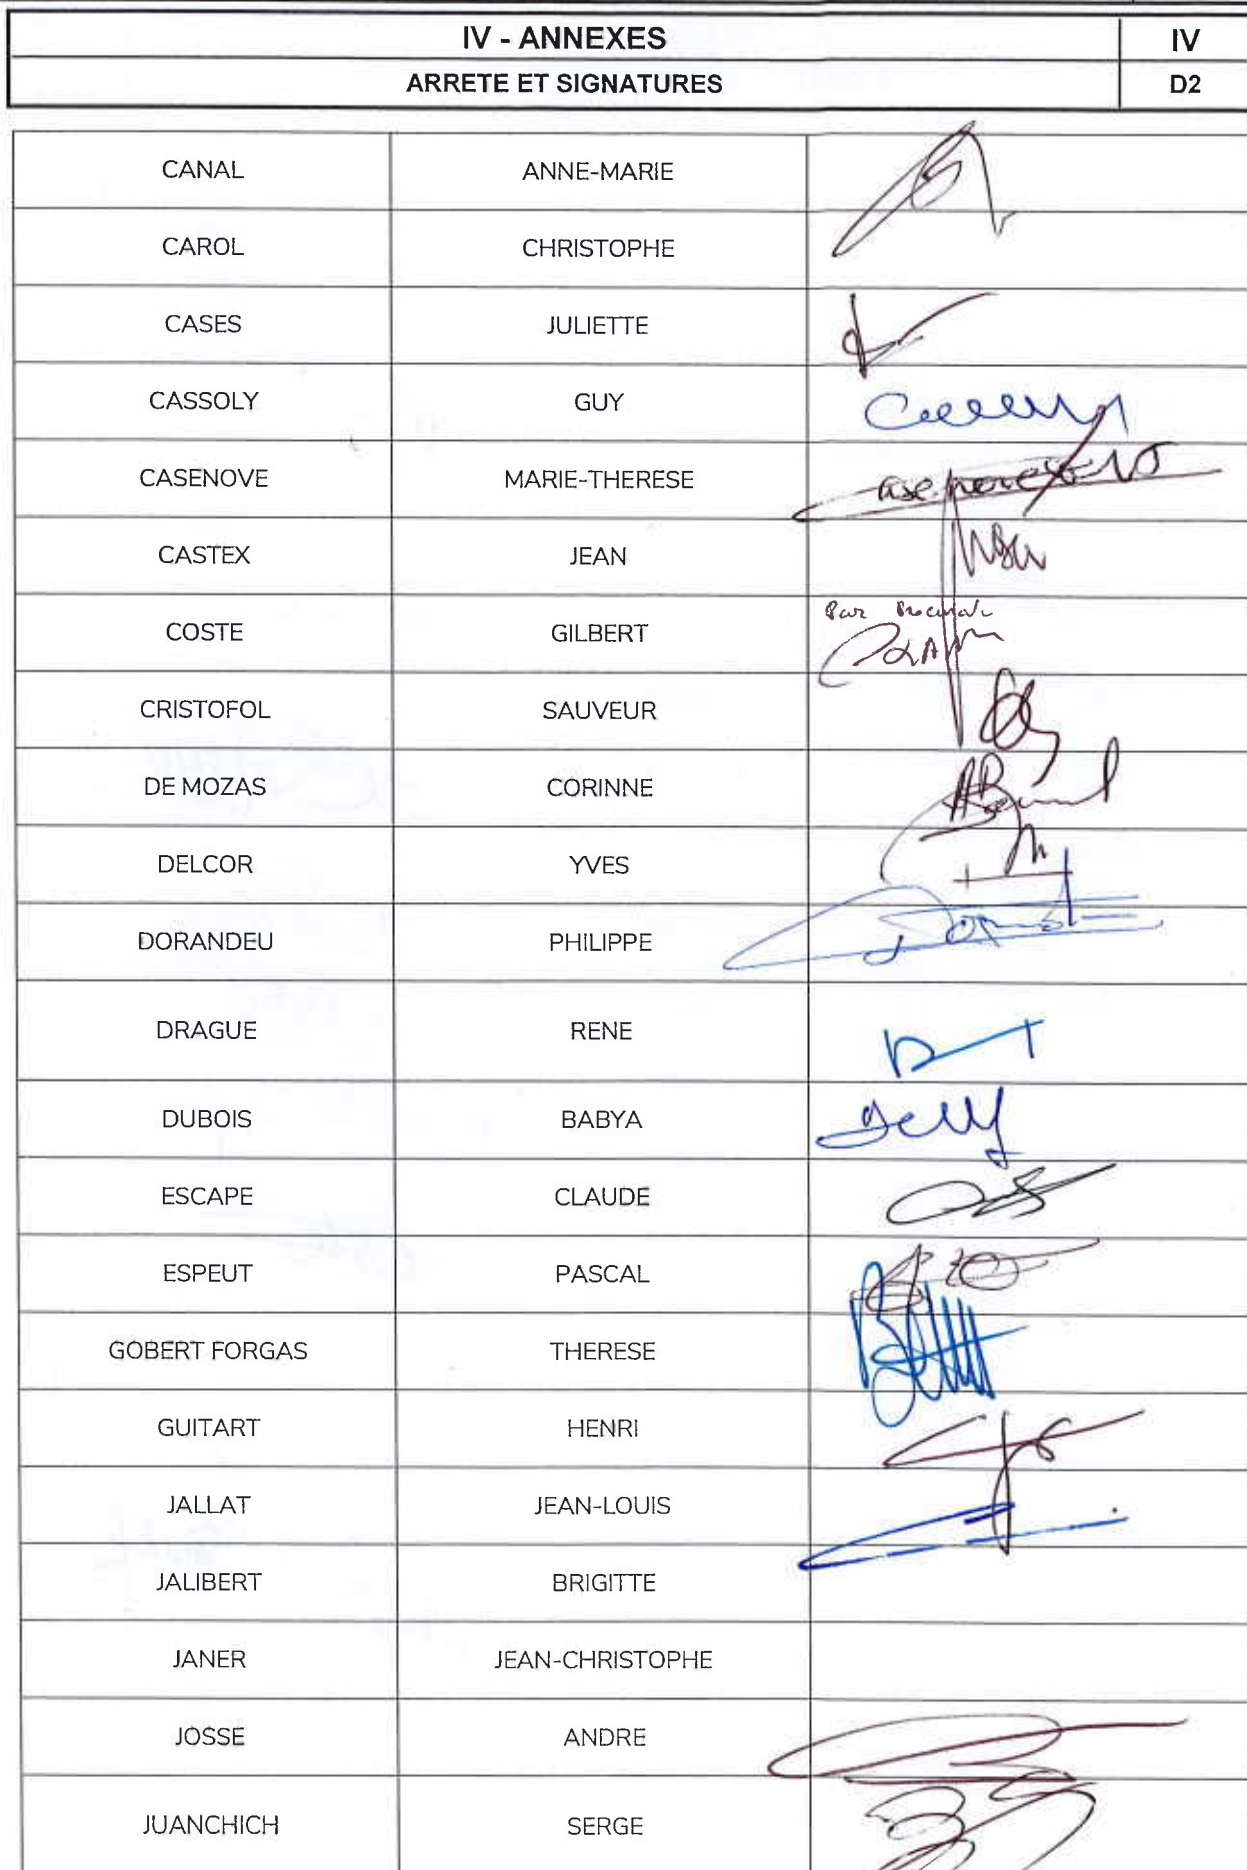 IV - ANNEXES IV
ARRETE ET SIGNATURES D2
CANAL ANNE-MARIE
CAROL CHRISTOPHE
CASES JULIETTE
CASSOLY GUY
CASENOVE MARIE-THERESE
CASTEX JEAN
Par
COSTE GILBERT
CRISTOFOL SAUVEUR
DE MOZAS CORINNE
DELCOR YVES
DORANDEU PHILIPPE
DRAGUE RENE
DUBOIS BABYA
ESCAPE CLAUDE
ESPEUT PASCAL
GOBERT FORGAS THERESE
GUITART HENRI
JALLAT JEAN-LOUIS
JALIBERT BRIGITTE
JANER JEAN-CHRISTOPHE
JOSSE ANDRE
JUANCHICH SERGE